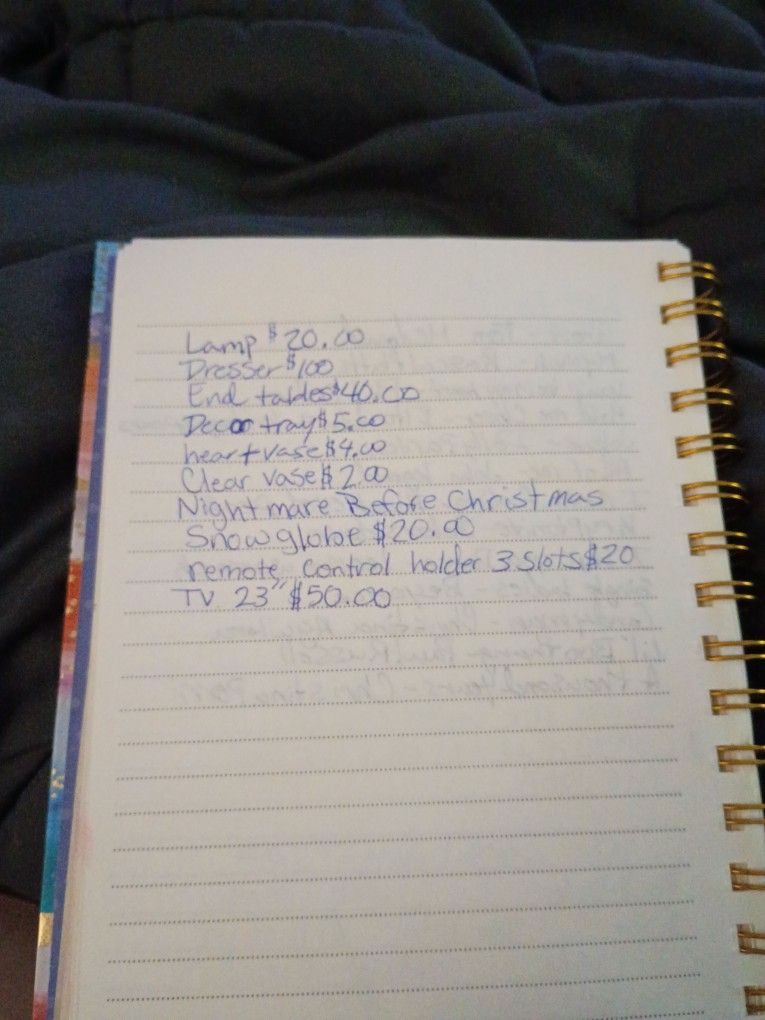 Lamp $20.00
Dresser $100
End tables $40.00
Decor tray $5.00
heart vase $4.00
Clear vase $2.00
Nightmare Before Christmas
Snow globe $20.00
remote control holder 3 slots $20
TV 23" $50.00